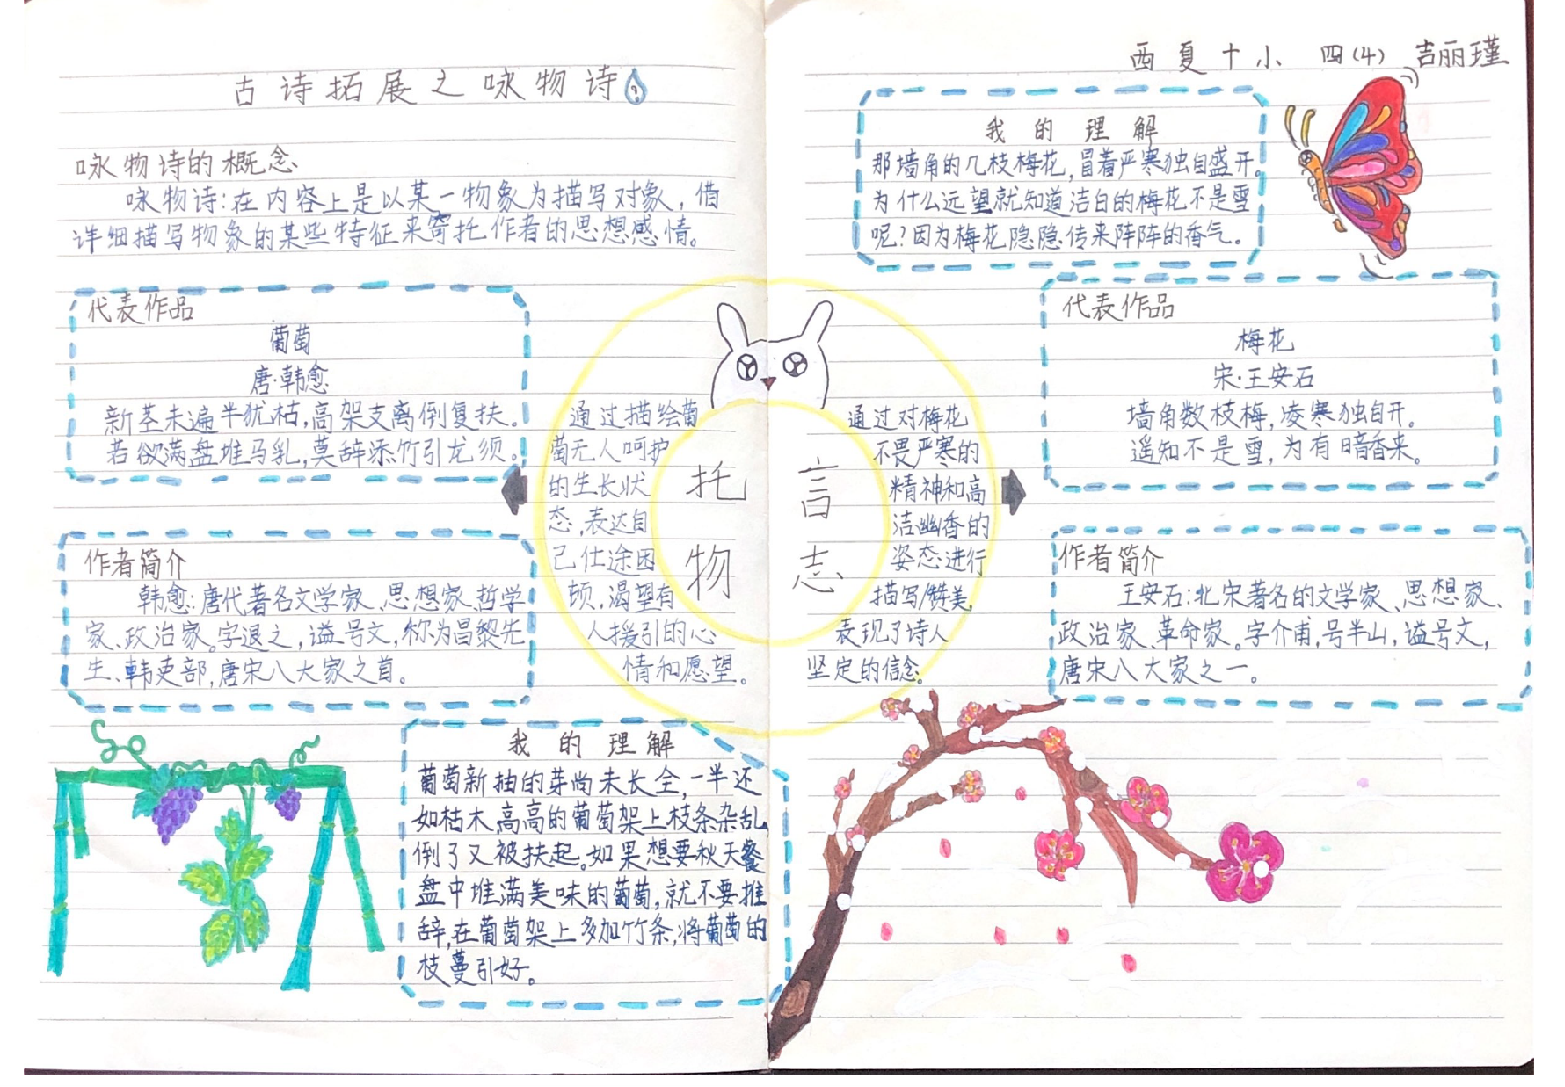 古诗拓展之咏物诗
咏物诗的概念
咏物诗:在内容上是以某一物象为描写对象，借
详细描写物象的某些特征来寄托作者的思想感情。
代表作品
葡萄
唐·韩愈
新茎未遍半犹枯,高架支离倒复扶。
若欲满盘堆马乳,莫辞添竹引龙须。
作者简介
韩愈:唐代著名文学家、思想家、哲学
家、政治家。字退之，谥号文，称为昌黎先
生、韩吏部,唐宋八大家之首。
通过描绘葡
萄无人呵护
的生长状
态,表达自
己仕途困
顿,渴望有
人援引的心
情和愿望。
托
物
我的理解
葡萄新抽的芽尚未长全,一半还
如枯木,高高的葡萄架上枝条杂乱,
倒了又被扶起。如果想要秋天餐
盘中堆满美味的葡萄,就不要推
辞,在葡萄架上多加竹条,将葡萄的
枝蔓引好。
西夏十小 四(4) 吉丽瑾
我的理解
那墙角的几枝梅花,冒着严寒独自盛开。
为什么远望就知道洁白的梅花不是雪
呢?因为梅花隐隐传来阵阵的香气。
言
志
通过对梅花
不畏严寒的
精神和高
洁幽香的
姿态进行
描写/赞美
表现了诗人
坚定的信念。
代表作品
梅花
宋·王安石
墙角数枝梅,凌寒独自开。
遥知不是雪,为有暗香来。
作者简介
王安石:北宋著名的文学家、思想家、
政治家、革命家。字介甫,号半山,谥号文,
唐宋八大家之一。